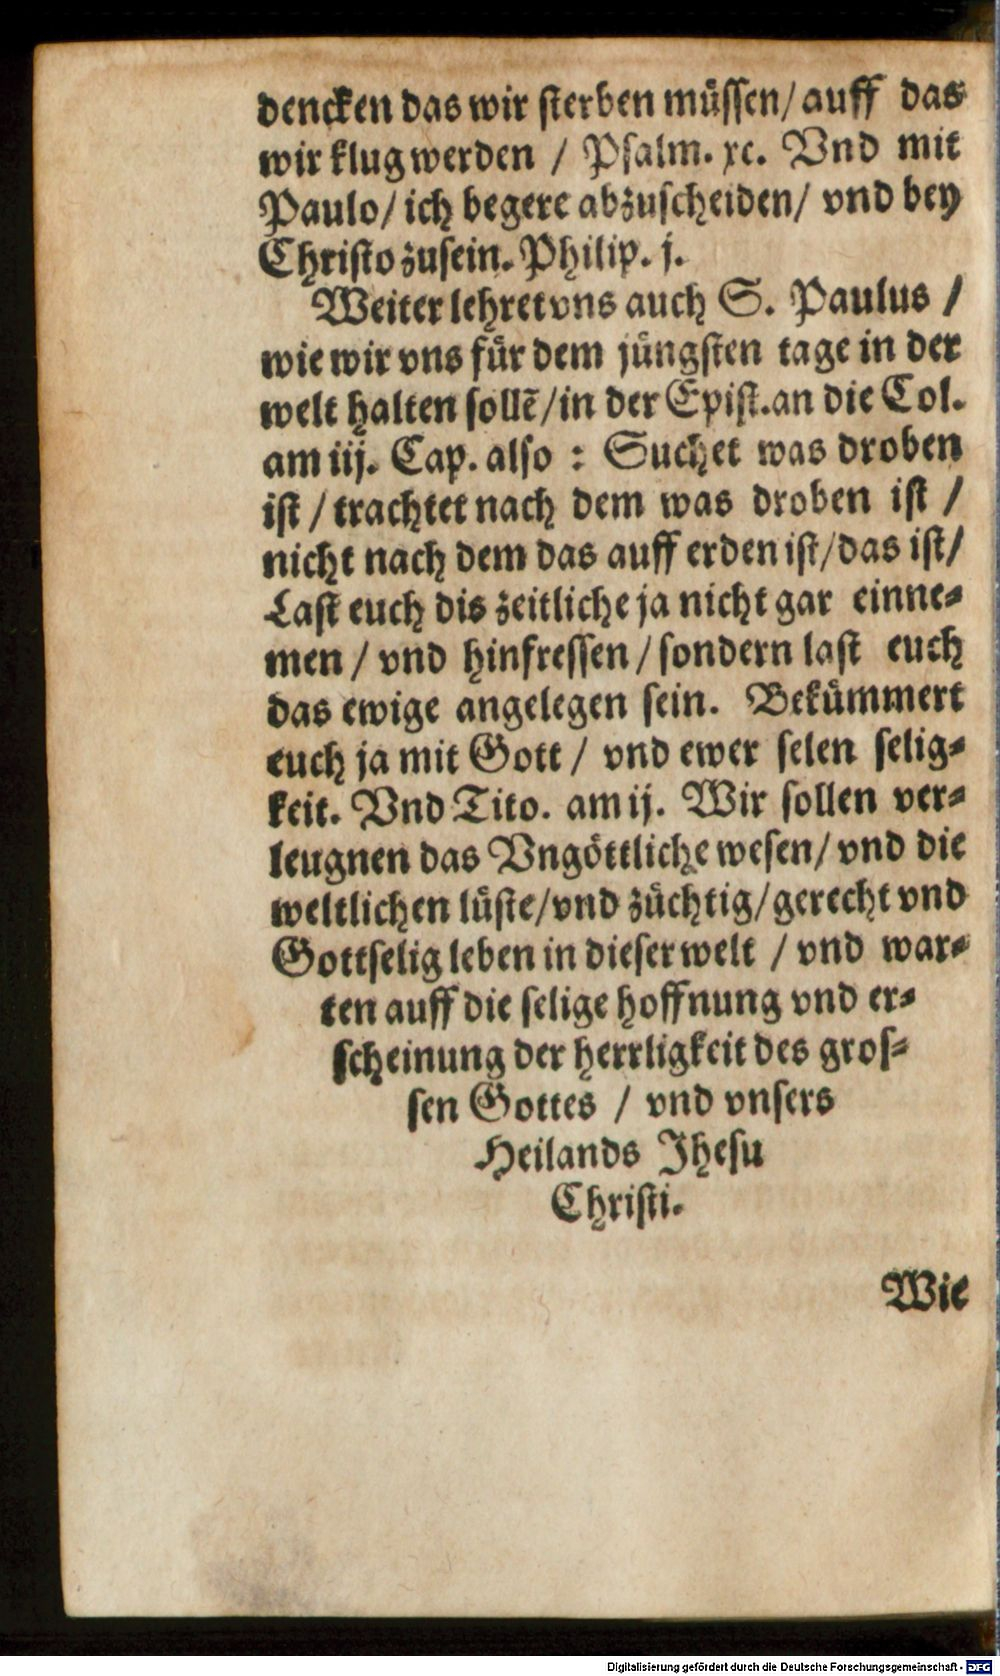 dencken das wir ſterben müſſen/ auff das
wir klug werden / Pſalm. xc. Vnd mit
Paulo/ ich begere abzuſcheiden/ vnd bey
Chriſto zuſein. Philip. j.
Weiter lehret vns auch S. Paulus /
wie wir vns für dem jüngſten tage in der
welt halten ſollẽ/in der Epiſt.an die Col.
am iij. Cap. alſo : Suchet was droben
iſt / trachtet nach dem was droben iſt /
nicht nach dem das auff erden iſt/das iſt/
Laſt euch dis zeitliche ja nicht gar einne⸗
men / vnd hinfreſſen / ſondern laſt euch
das ewige angelegen ſein. Bekümmert
euch ja mit Gott / vnd ewer ſelen ſelig⸗
keit. Vnd Tito. am ij. Wir ſollen ver⸗
leugnen das Vngöttliche weſen/ vnd die
weltlichen lüſte/vnd züchtig/gerecht vnd
Gottſelig leben in dieſer welt / vnd war⸗
ten auff die ſelige hoffnung vnd er⸗
ſcheinung der herrligkeit des groſ⸗
ſen Gottes / vnd vnſers
Heilands Jheſu
Chriſti.
Wie
Digitalisierung gefördert durch die Deutsche Forschungsgemeinschaft - DFG